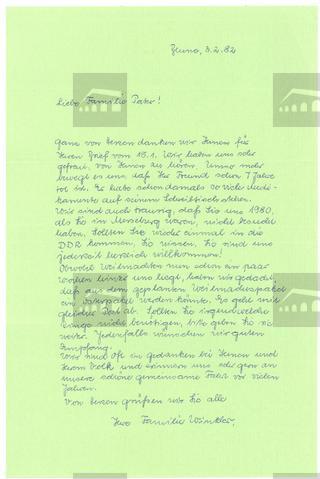 Zeuna, 3.2.82
Liebe Familie Pater!
Ganz von Herzen danken wir Ihnen für
Ihren Brief vom 15.1. Wir haben uns sehr
gefreut, von Ihnen zu hören. Immer mehr
bewegt es uns, daß Ihr Freund schon 7 Jahre
tot ist. Er hatte schon damals so viele Medi-
kamente auf seinem Schreibtisch stehen.
Wir sind auch traurig, daß Sie uns 1980,
als Sie in Merseburg waren, nicht besucht
haben. Sollten Sie wieder einmal in die
DDR kommen, Sie wissen, Sie sind uns
jederzeit herzlich willkommen!
Obwohl Weihnachten nun schon ein paar
Wochen hinter uns liegt, haben wir gedacht,
daß aus dem geplanten Weihnachtspaket
ein Osterpaket werden könnte. Es geht mit
gleicher Post ab. Sollten Sie irgendwelche
Dinge nicht benötigen, bitte geben Sie sie
weiter. Jedenfalls wünschen wir guten
Empfang.
Wir sind oft in Gedanken bei Ihnen und
Ihrem Volk und erinnern uns sehr gern an
unsere schöne gemeinsame Fahrt vor vielen
Jahren.
Von Herzen grüßen wir Sie alle
Ihre Familie Winkler.